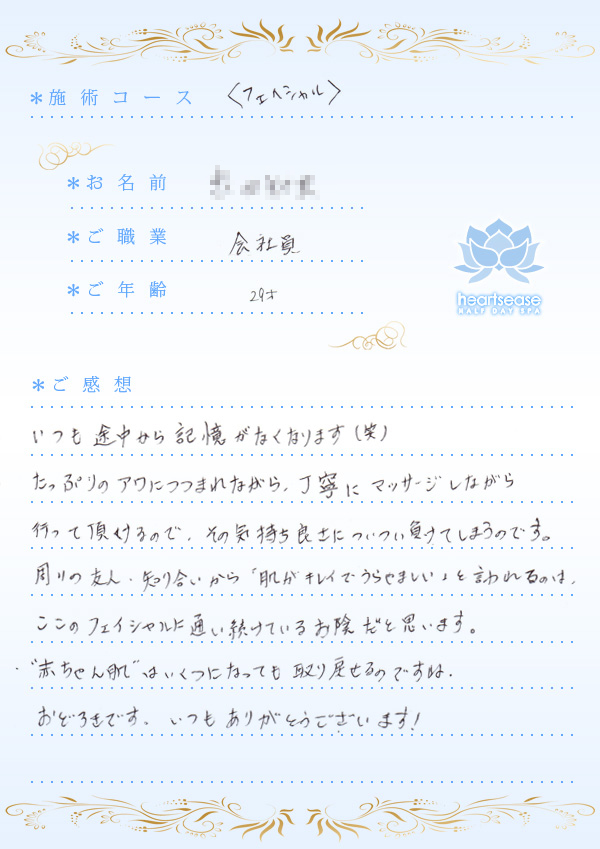 ＊施術コース 〈フェイシャル〉
＊お名前
＊ご職業 会社員
＊ご年齢 29才
heartsease
HALF DAY SPA
＊ご感想
いつも途中から記憶がなくなります(笑)
たっぷりのアワにつつまれながら、丁寧にマッサージしながら
行って頂けるので、その気持ち良さについつい負けてしまうのです。
周りの友人・知り合いから「肌がキレイでうらやましい」と言われるのは、
ここのフェイシャルに通い続けているお陰だと思います。
"赤ちゃん肌"はいくつになっても取り戻せるのですね.
おどろきです. いつもありがとうございます!